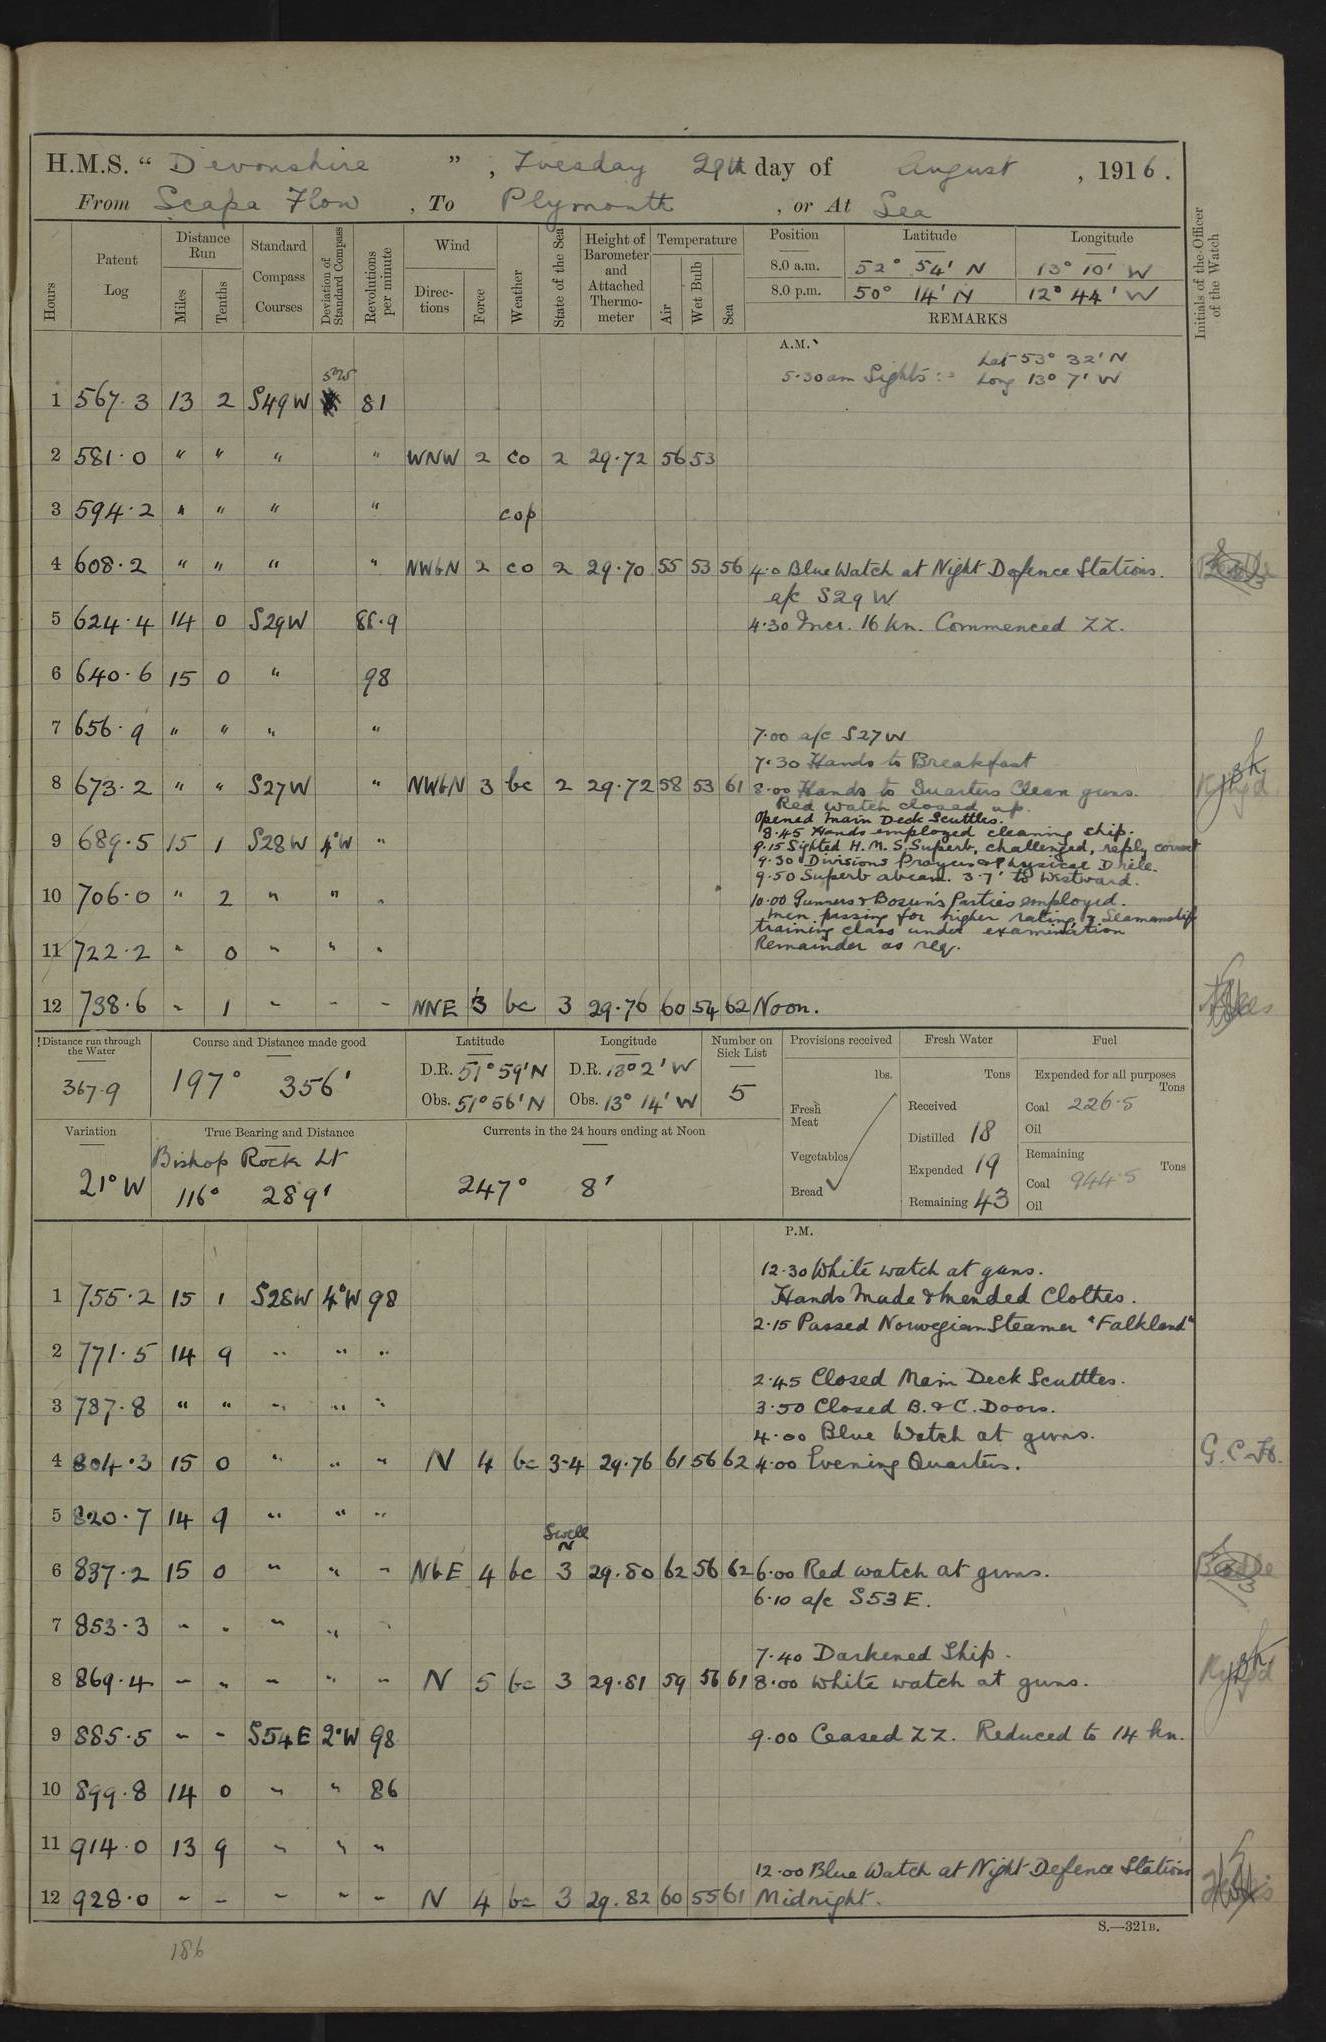 H.M.S. “ Devonshire ” , Tuesday 29th day of August , 1916.
From Scapa Flow , To Plymouth , or At Sea
Hours
Patent Log
Distance Run
Miles
Tenths
Standard Compass Courses
Deviation of Standard Compass
Revolutions per minute
Wind
Directions
Force
Weather
State of the Sea
Height of Barometer and Attached Thermometer
Temperature
Air
Wet Bulb
Sea
Position Latitude Longitude
8.0 a.m. 52° 54' N 13° 10' W
8.0 p.m. 50° 14' N 12° 44' W
REMARKS
Initials of the Officer of the Watch
A.M.
5.30 am Sights :- Lat 53° 32' N
Long 13° 7' W
1 567.3 13 2 S49W 81
2 581.0 " " " " WNW 2 co 2 29.72 56 53
3 594.2 " " " " cop
4 608.2 " " " " NWbN 2 co 2 29.70 55 53 56 4.0 Blue Watch at Night Defence Stations.
a/c S29W
5 624.4 14 0 S29W 88.9 4.30 Incr. 16 kn. Commenced ZZ.
6 640.6 15 0 " 98
7 656.9 " " " " 7.00 a/c S27W
7.30 Hands to Breakfast
8 673.2 " " S27W " NWbN 3 bc 2 29.72 58 53 61 8.00 Hands to Quarters Clean guns.
Red Watch closed up.
Opened Main Deck Scuttles.
8.45 Hands employed cleaning ship.
9 689.5 15 1 S28W 4°W " 9.15 Sighted H.M.S. Superb, challenged, reply correct
9.30 Divisions Prayers & Physical Drill.
9.50 Superb abeam. 3.7' to Westward.
10 706.0 " 2 " " " 10.00 Gunners & Bosun's Parties employed.
Men passing for higher rating, & Seamanship
training class under examination
11 722.2 " 0 " " " Remainder as req.
12 738.6 " 1 " " " NNE 3 bc 3 29.76 60 54 62 Noon.
Distance run through the Water
367.9
Course and Distance made good
197° 356'
Latitude
D.R. 51° 59' N
Obs. 51° 56' N
Longitude
D.R. 13° 2' W
Obs. 13° 14' W
Number on Sick List
5
Provisions received
lbs.
Fresh Meat
Vegetables
Bread
Fresh Water
Tons
Received
Distilled 18
Expended 19
Remaining 43
Fuel
Expended for all purposes
Tons
Coal 226.5
Oil
Remaining
Tons
Coal 944.5
Oil
Variation
21° W
True Bearing and Distance
Bishop Rock Lt
116° 289'
Currents in the 24 hours ending at Noon
247° 8'
P.M.
12.30 White watch at guns.
1 755.2 15 1 S28W 4°W 98 Hands Made & mended Clothes.
2.15 Passed Norwegian Steamer "Falkland"
2 771.5 14 9 " " "
2.45 Closed Main Deck Scuttles.
3 787.8 " " " " " 3.50 Closed B. & C. Doors.
4.00 Blue Watch at guns.
4 804.3 15 0 " " " N 4 bc 3-4 29.76 61 56 62 4.00 Evening Quarters.
5 820.7 14 9 " " "
Swell N
6 837.2 15 0 " " " NbE 4 bc 3 29.80 62 56 62 6.00 Red watch at guns.
6.10 a/c S53E.
7 853.3 " " " " "
7.40 Darkened Ship.
8 869.4 " " " " " N 5 bc 3 29.81 59 56 61 8.00 White watch at guns.
9 885.5 " " S54E 2°W 98 9.00 Ceased ZZ. Reduced to 14 kn.
10 899.8 14 0 " " 86
11 914.0 13 9 " " "
12.00 Blue Watch at Night Defence Stations
12 928.0 " " " " " N 4 bc 3 29.82 60 55 61 Midnight.
S.—321B.
186